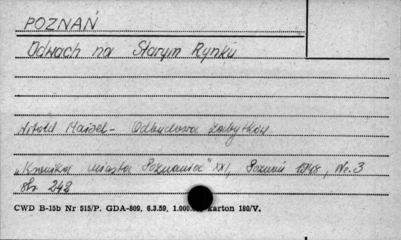 POZNAŃ
Odwach na Starym Rynku
Witold Maisel - Odbudowa zabytków
„Kronika miasta Poznania" XXI, Poznań 1948, Nr. 3
str. 248
CWD B-15b Nr 515/P. GDA-809, 6.3.59, 1.000. karton 180/V.